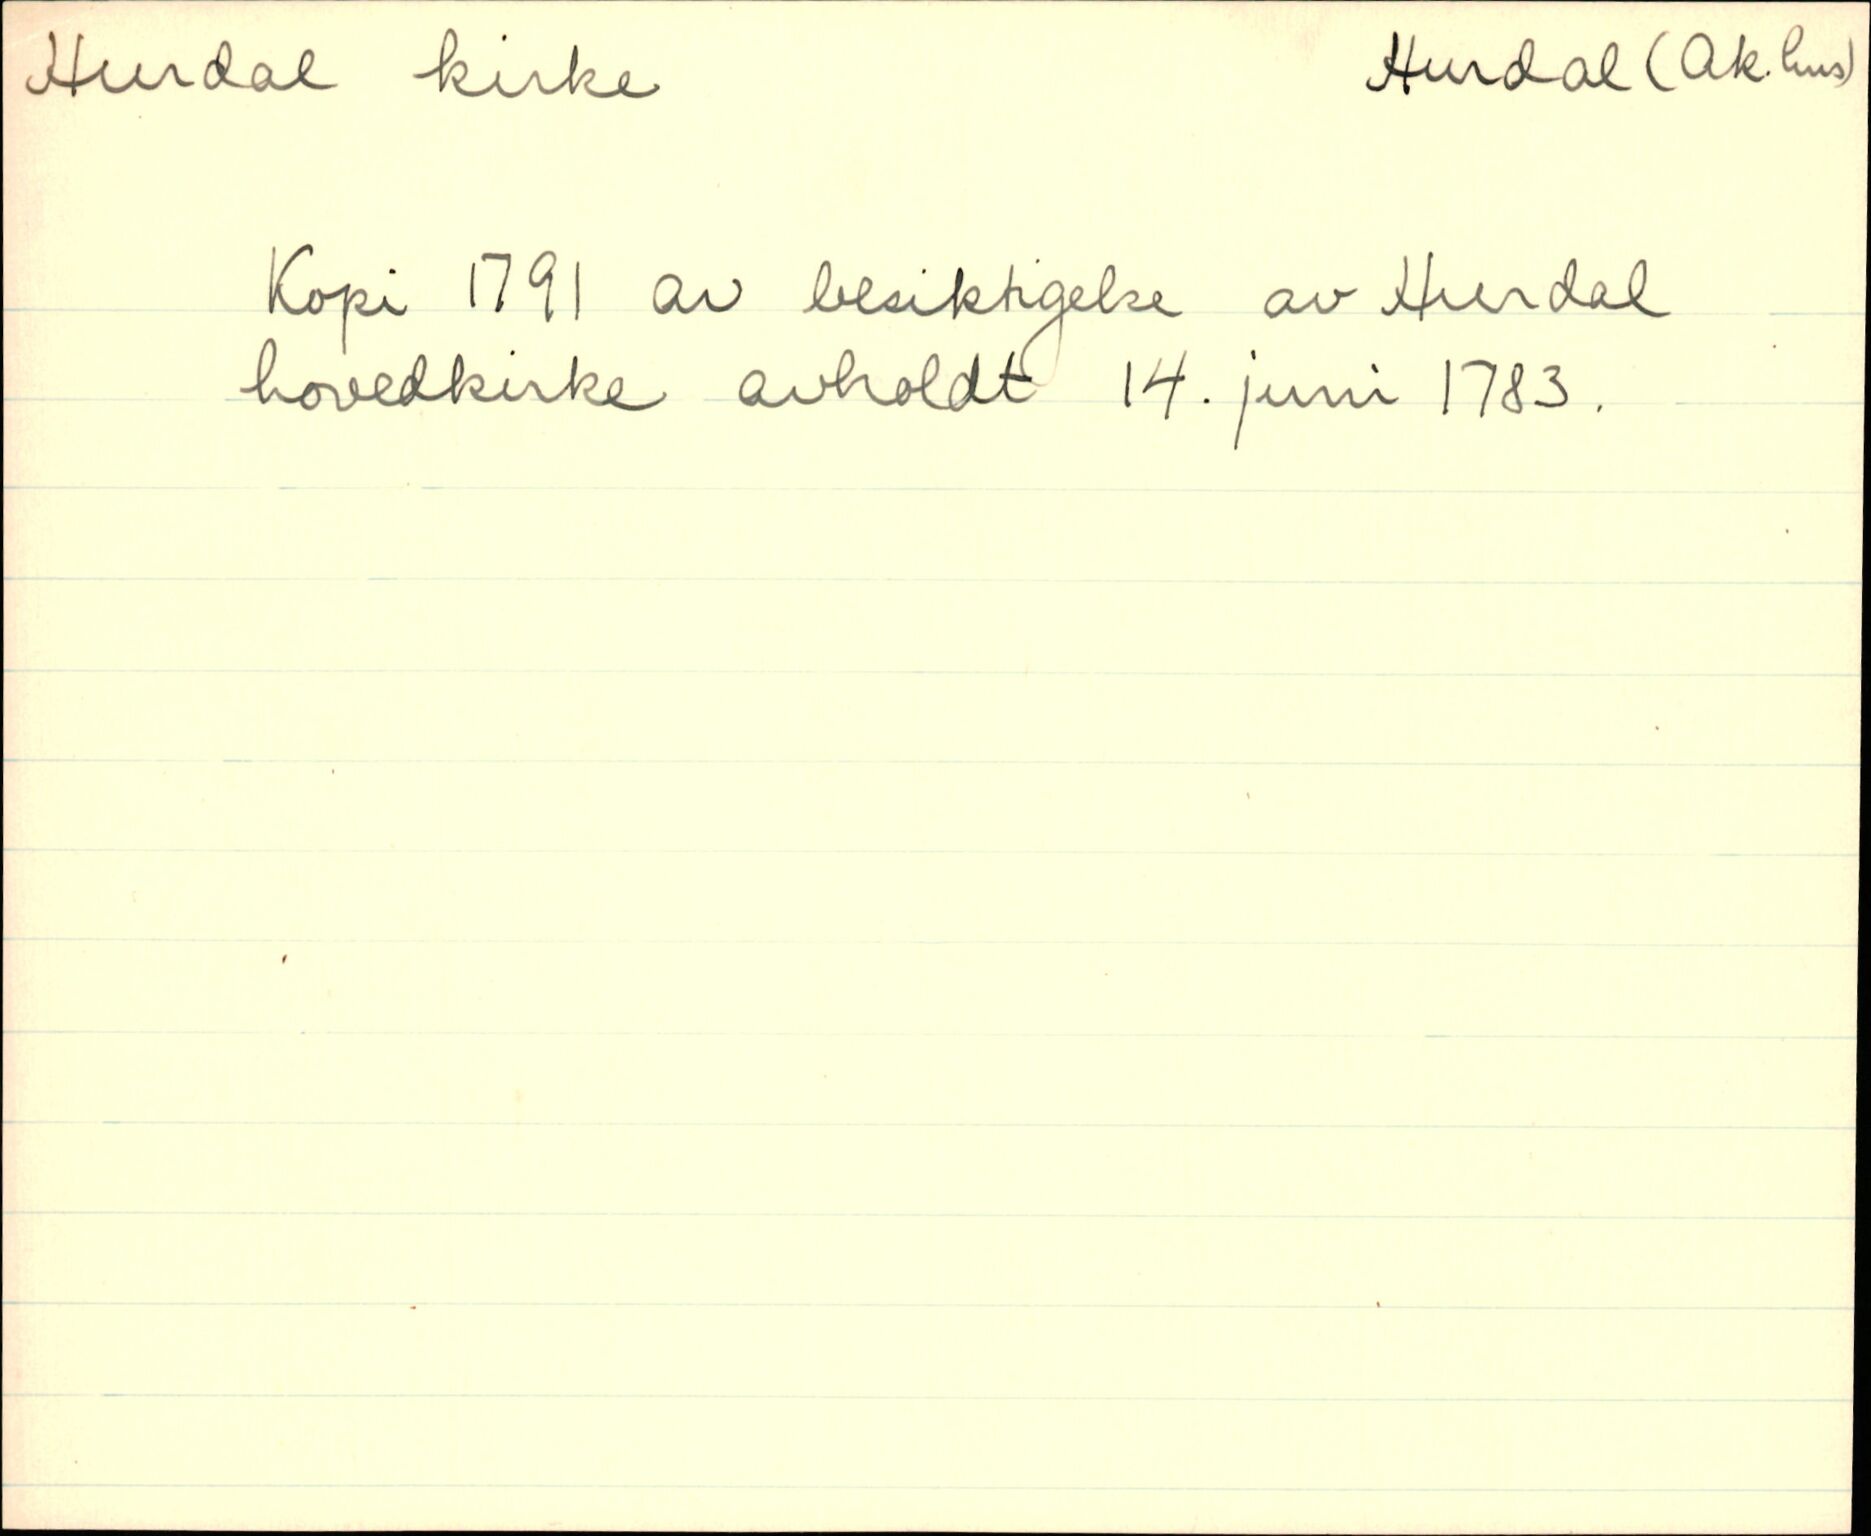 Hurdal kirke Hurdal (Ak.hus)
Kopi 1791 av besiktigelse av Hurdal
hovedkirke avholdt 14. juni 1783.